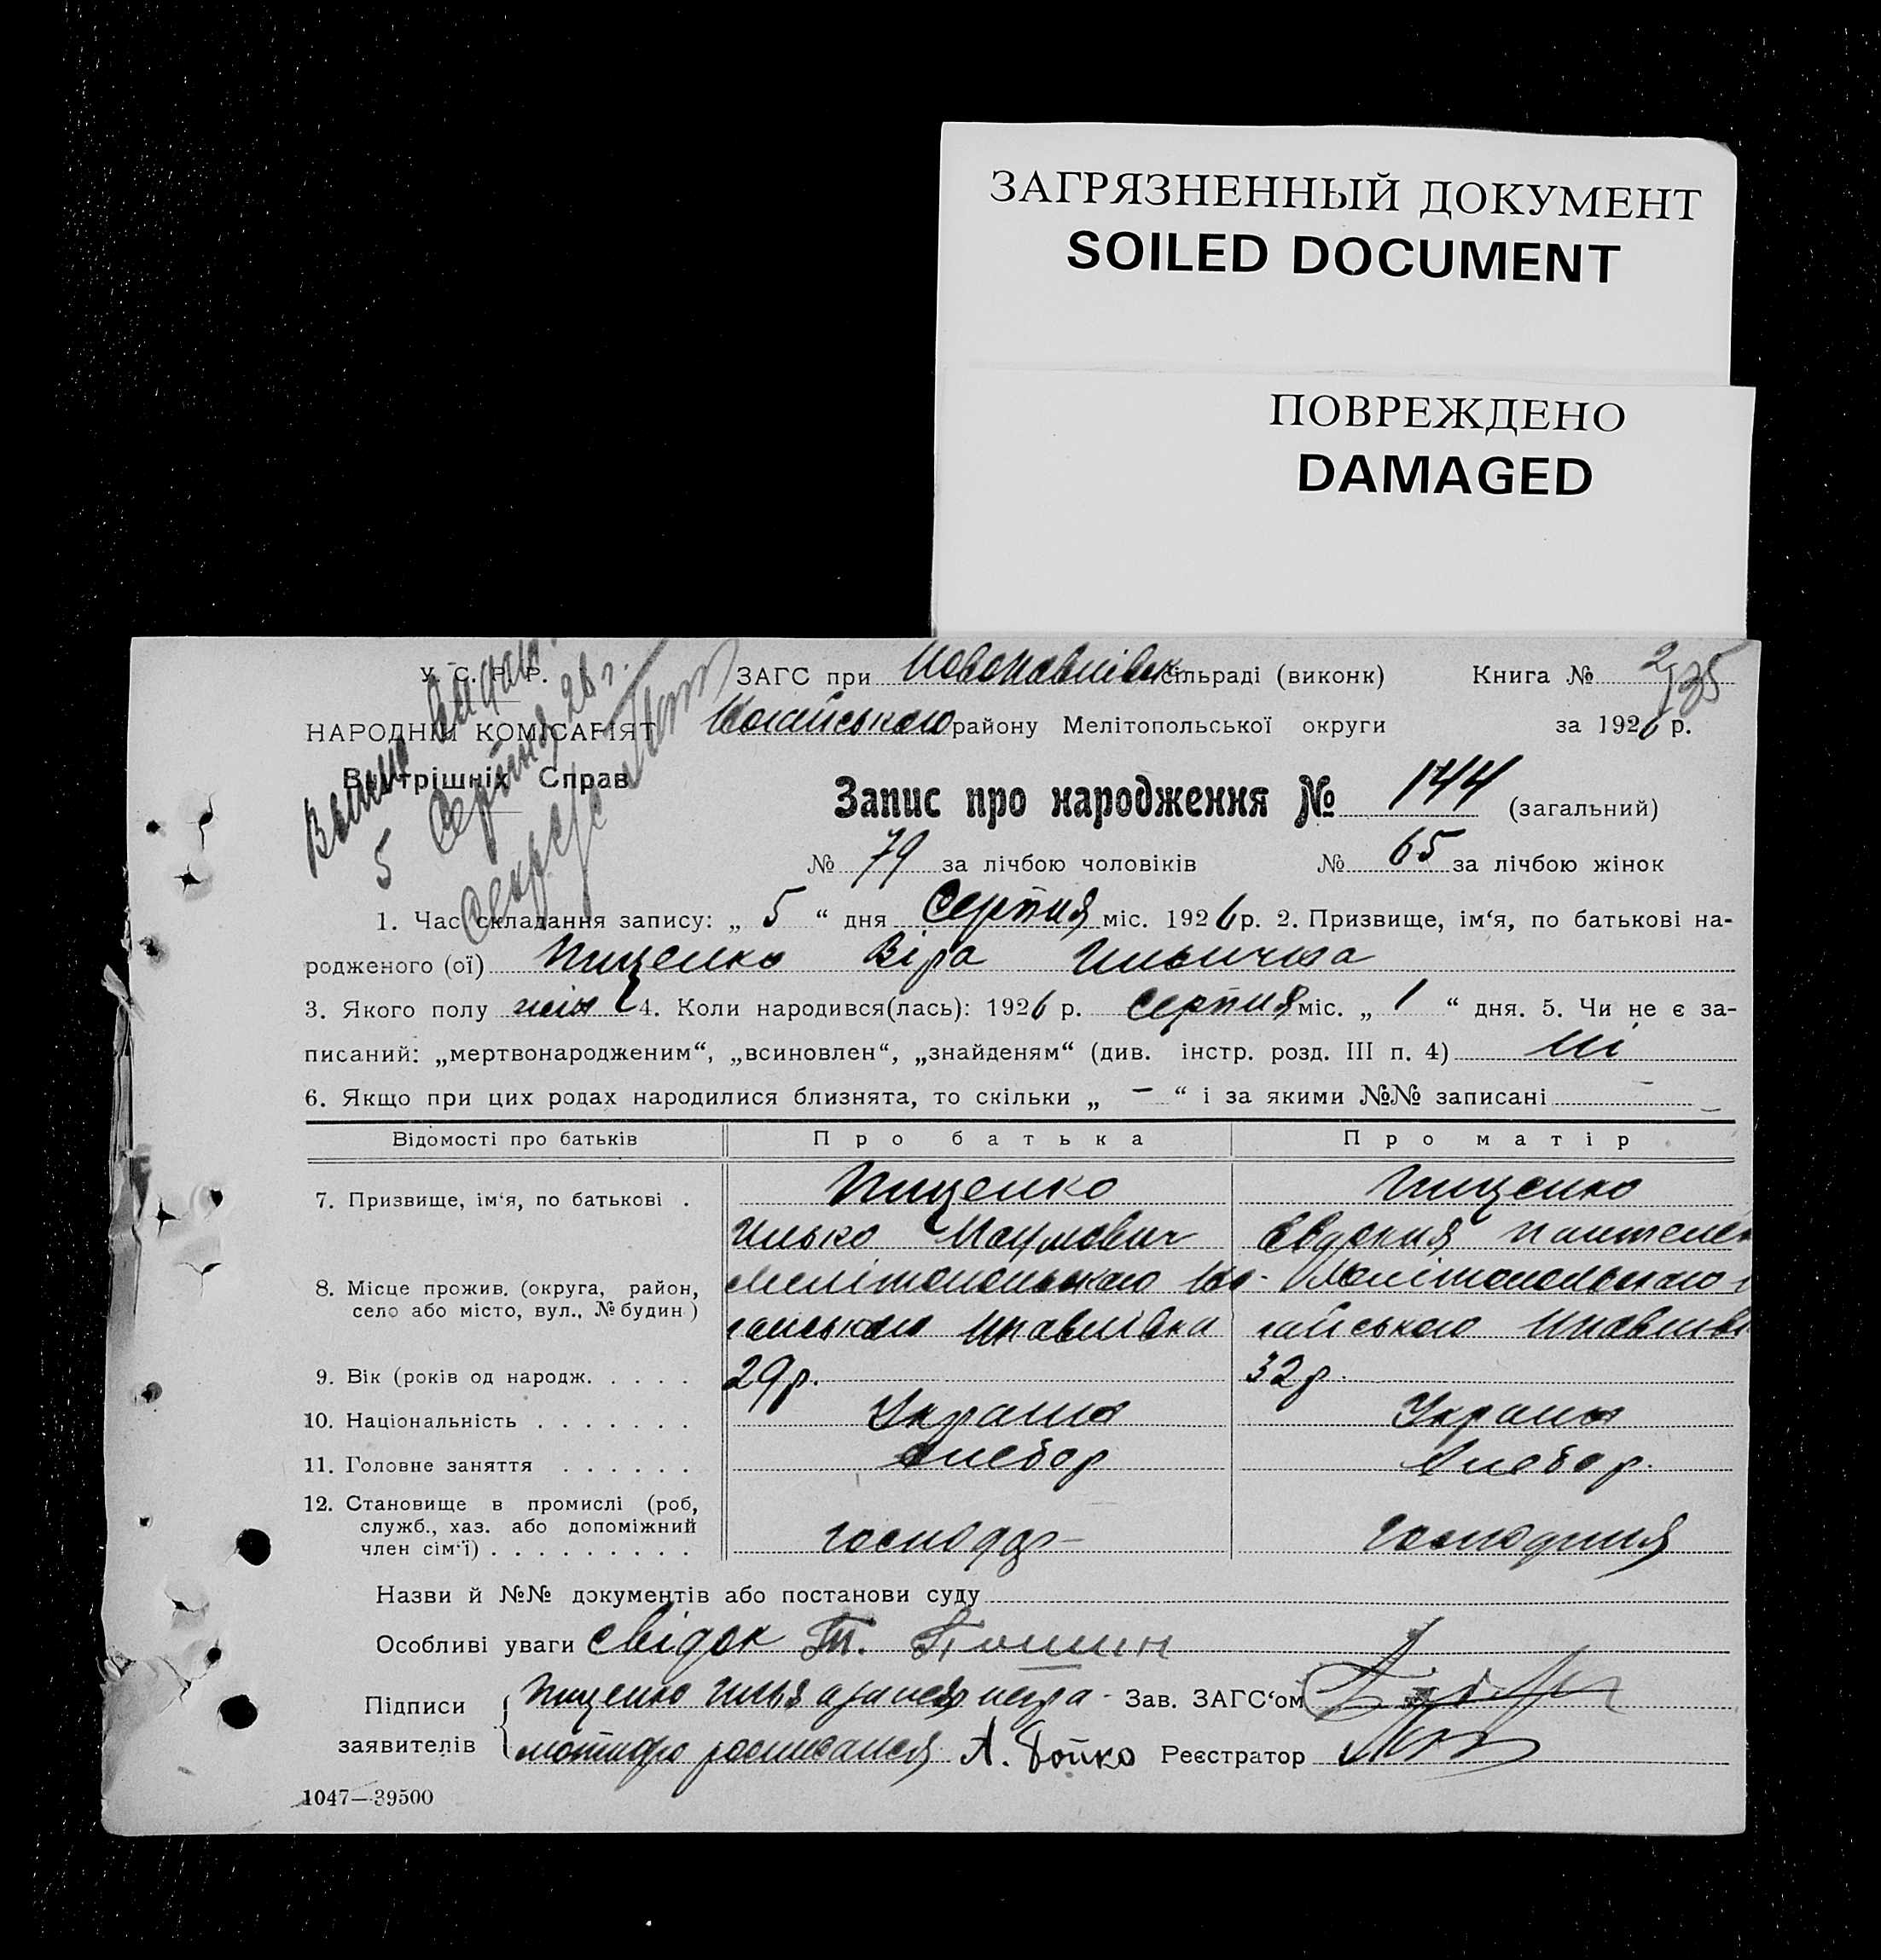 ЗАГРЯЗНЕННЫЙ ДОКУМЕНТ
SOILED DOCUMENT
ПОВРЕЖДЕНО
DAMAGED
У. С. Р. Р. ЗАГС при Новопавлівск сільраді (виконк) Книга № 2
НАРОДНІЙ КОМІСАРІЯТ Ногайського району Мелітопольської округи за 1926 р.
Внутрішніх Справ
5 Серпня 26 г.
Запис про народження № 144 (загальний)
№ 79 за лічбою чоловіків № 65 за лічбою жінок
1. Час складання запису: „ 5 “ дня Серпня міс. 1926 р. 2. Призвище, ім‘я, по батькові на-
родженого (ої) Пищенко Віра
3. Якого полу жін 4. Коли народився(лась): 1926 р. Серпня міс. „ 1 “ дня. 5. Чи не є за-
писаний: „мертвонародженим“, „всиновлен“, „знайденям“ (див. інстр. розд. III п. 4) ні
6. Якщо при цих родах народилися близнята, то скільки „ – “ і за якими №№ записані –
Відомості про батьків Про батька Про матір
7. Призвище, ім‘я, по батькові . Пищенко Пищенко
Илько Наумович Евдокия
8. Місце прожив. (округа, район, Мелітопольского Но- Мелітопольского
село або місто, вул., № будин) гайського Нпавлівка гайського
9. Вік (років од народж. . . . . 29р. 32р.
10. Національність . . . . . . . Украина Украина
11. Головне заняття . . . . . . Хлебор Хлебор.
12. Становище в промислі (роб,
служб., хаз. або допоміжний
член сім‘ї) . . . . . . . . . господар господиня
Назви й №№ документів або постанови суду
Особливі уваги свідок Т.
Підписи Пищенко Илья Зав. ЗАГС‘ом
заявителів А. Бойко Реєстратор
1047—39500